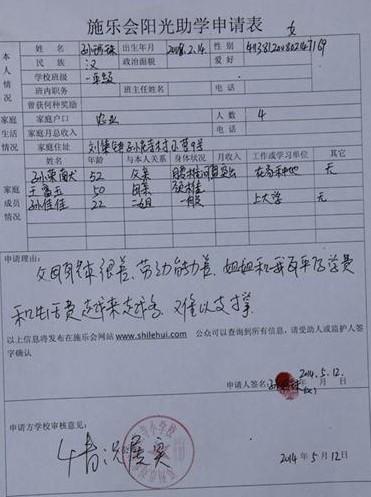 施乐会阳光助学申请表
女
本人情况 姓名 孙 出生年月 2008.2.14 性别
民族 汉 政治面貌 爱好
学校班级 一年级
班内职务 班主任姓名 电话
曾获何种奖励
家庭生活情况 家庭户口 农业 人数 4
家庭月总收入 电话
家庭住址 刘集镇
家庭成员情况 姓名 年龄 与本人关系 身体状况 月收入 工作或学习单位 其它
孙东献 52 父亲 腰椎间盘突出 在家种地 无
王 50 母亲 无
孙佳佳 22 二姐 一般 上大学 无
申请理由:
父母身体很差、劳动能力差、姐姐和我每年的学费
和生活费越来越多,难以支撑.
以上信息将发布在施乐会网站 www.shilehui.com 公众可以查询到所有信息,请受助人或监护人签
字确认
2014.5.12.
申请人签名: 年 月 日
申请方学校审核意见:
情况属实
2014年5月12日